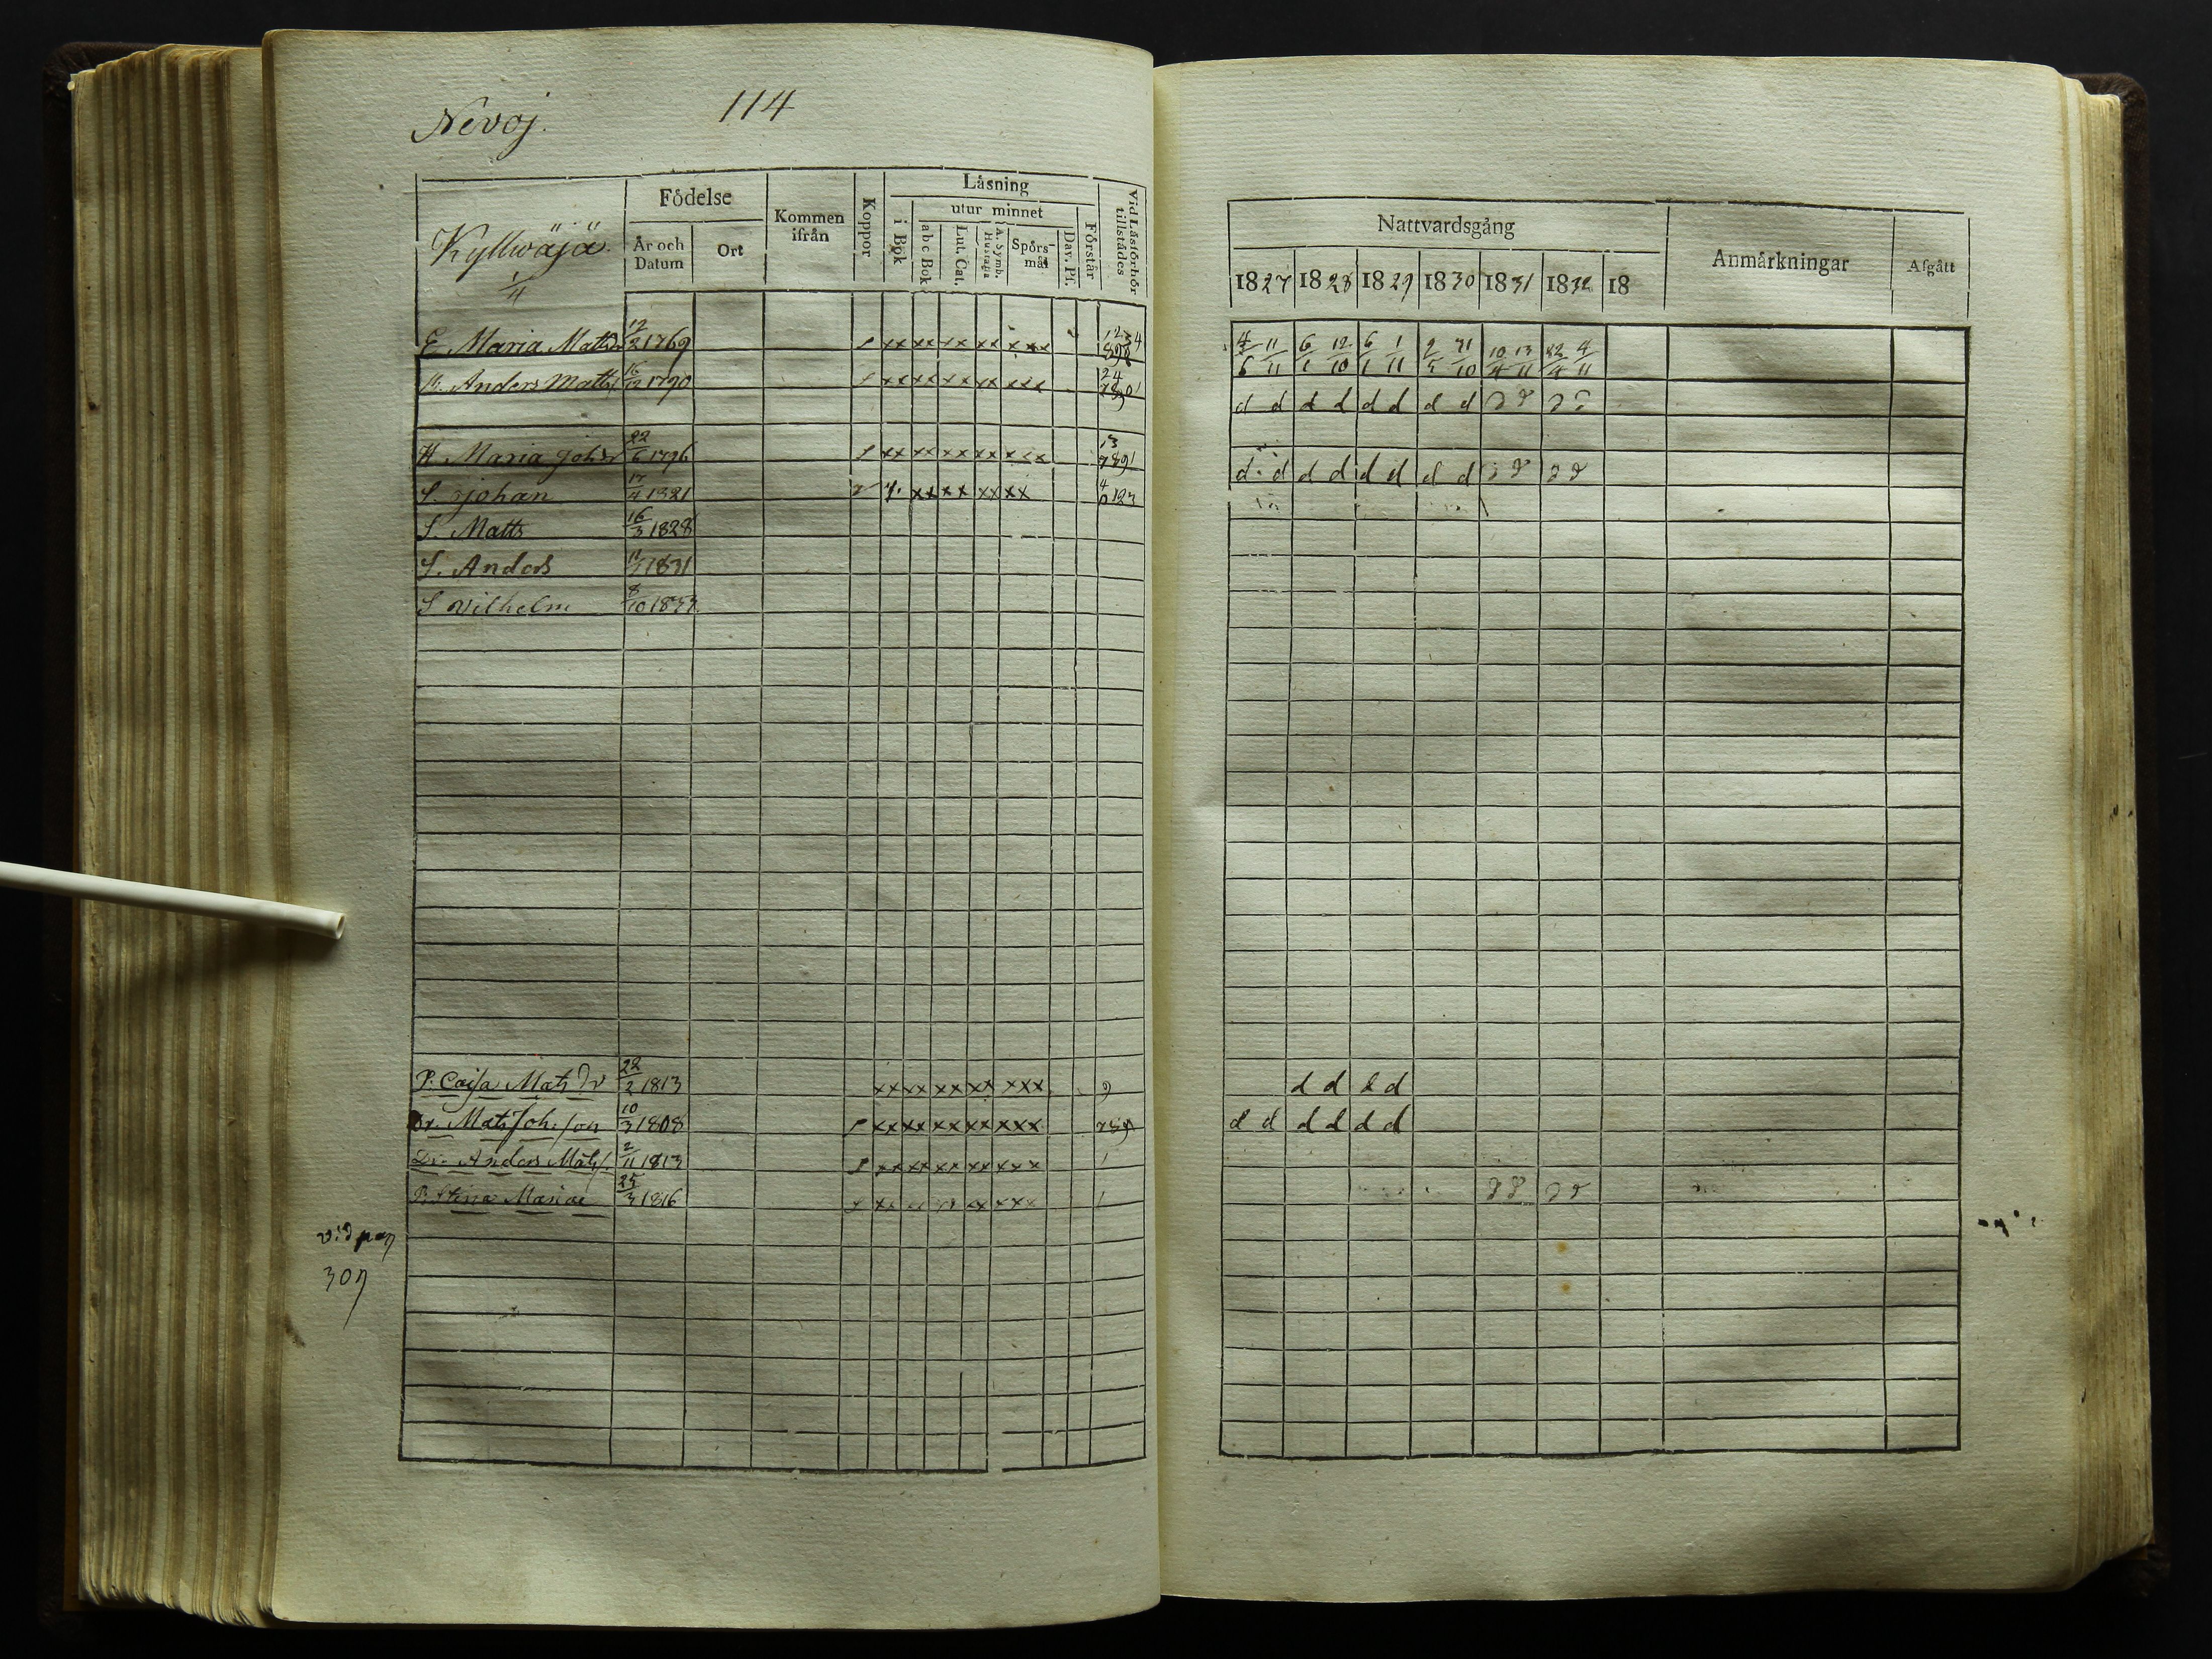 114
Nevoj.
Kyllwäjä.
1/4
Födelse
År och Datum
Ort
Kommen ifrån
Koppor
Läsning
i Bok
utur minnet
abc Bok
Lut. Cat.
A. Symb. Hustafla
Spörsmål
Dav. Ps.
Förstår
Vid Läsförhör tillstädes
E. Maria Matsdr 12/2 1769 xx xx xx xx xxx
B. Anders Matts 16/12 1790 xx xx xx xx xxx
H. Maria Johsdr 22/6 1796 xx xx xx xx xxx
S. Johan 17/4 1821 xx xx xx xx
S. Matts 16/3 1828
S. Anders 1831
S Vilhelm 8/10 1833
P. Caisa Mats dr 22/2 1813 xx xx xx xx xxx 9
Dr. Mats Joh. son 10/3 1808 xx xx xx xx xxx 789
Dr. Anders Mats 2/11 1813 xx xx xx xx xxx 1
P. Stina Mariae 25/3 1816 xx xx xx xx xxx 1
vid pag
307
Nattvardsgång
Anmärkningar
Afgått
1827 1828 1829 1830 1831 1832 18
4/6 11/11 6/1 12/10 6/1 1/11 2/5 31/10 10/4 13/11 22/4 4/11
d d d d d d d d
d d d d d d d d
d d d d
d d d d d d